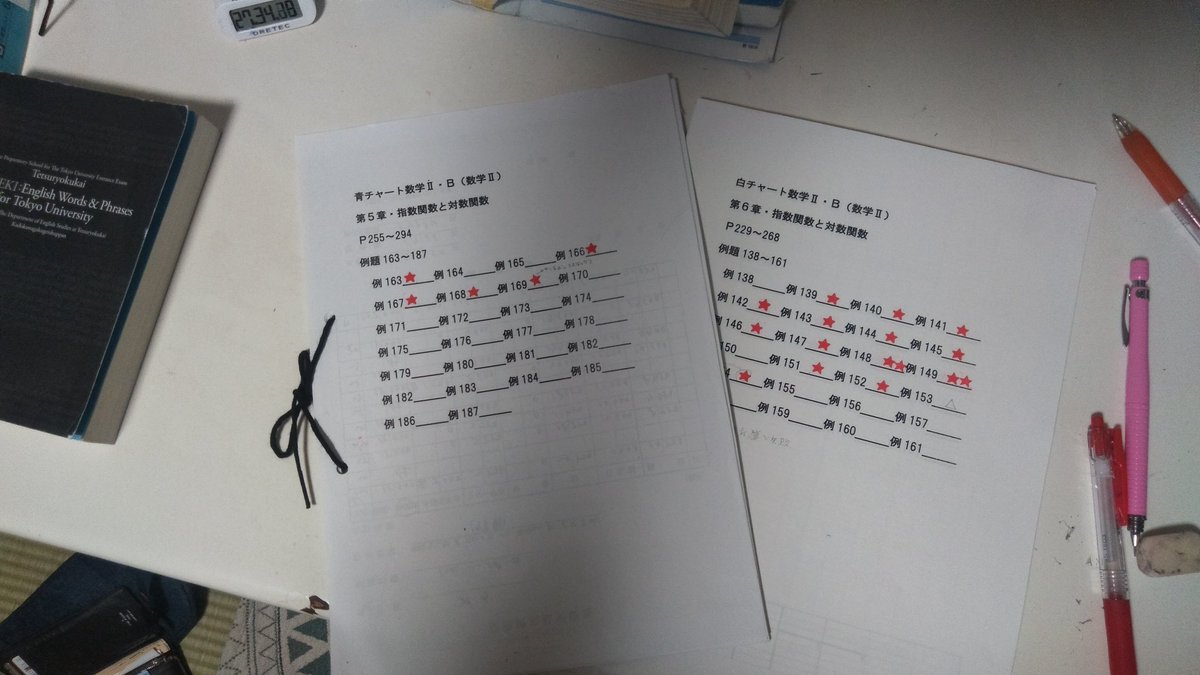 27.34.38
DRETEC
Tetsuryokukai
EK1:English Words & Phrases
for Tokyo University
青チャート数学Ⅱ・B（数学Ⅱ）
第5章・指数関数と対数関数
P255～294
例題 163～187
例 163★ 例 164____ 例 165____ 例 166★
例 167★ 例 168★ 例 169★ 例 170____
例 171____ 例 172____ 例 173____ 例 174____
例 175____ 例 176____ 例 177____ 例 178____
例 179____ 例 180____ 例 181____ 例 182____
例 182____ 例 183____ 例 184____ 例 185____
例 186____ 例 187____
白チャート数学Ⅱ・B（数学Ⅱ）
第6章・指数関数と対数関数
P229～268
例題 138～161
例 138____ 例 139★ 例 140★ 例 141★
例 142★ 例 143★ 例 144★ 例 145★
例 146★ 例 147★ 例 148★★ 例 149★★
150____ 例 151★ 例 152★ 例 153△
4★ 例 155____ 例 156____ 例 157____
例 159____ 例 160____ 例 161____